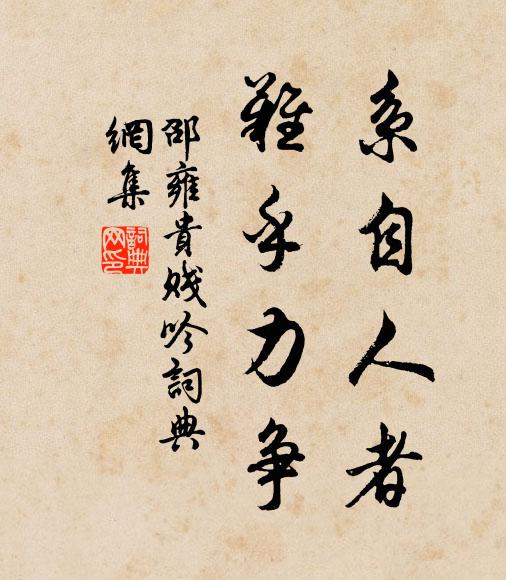 系自人者
難乎力争
邵雍貴賤吟詞典
網集
詞典
网印